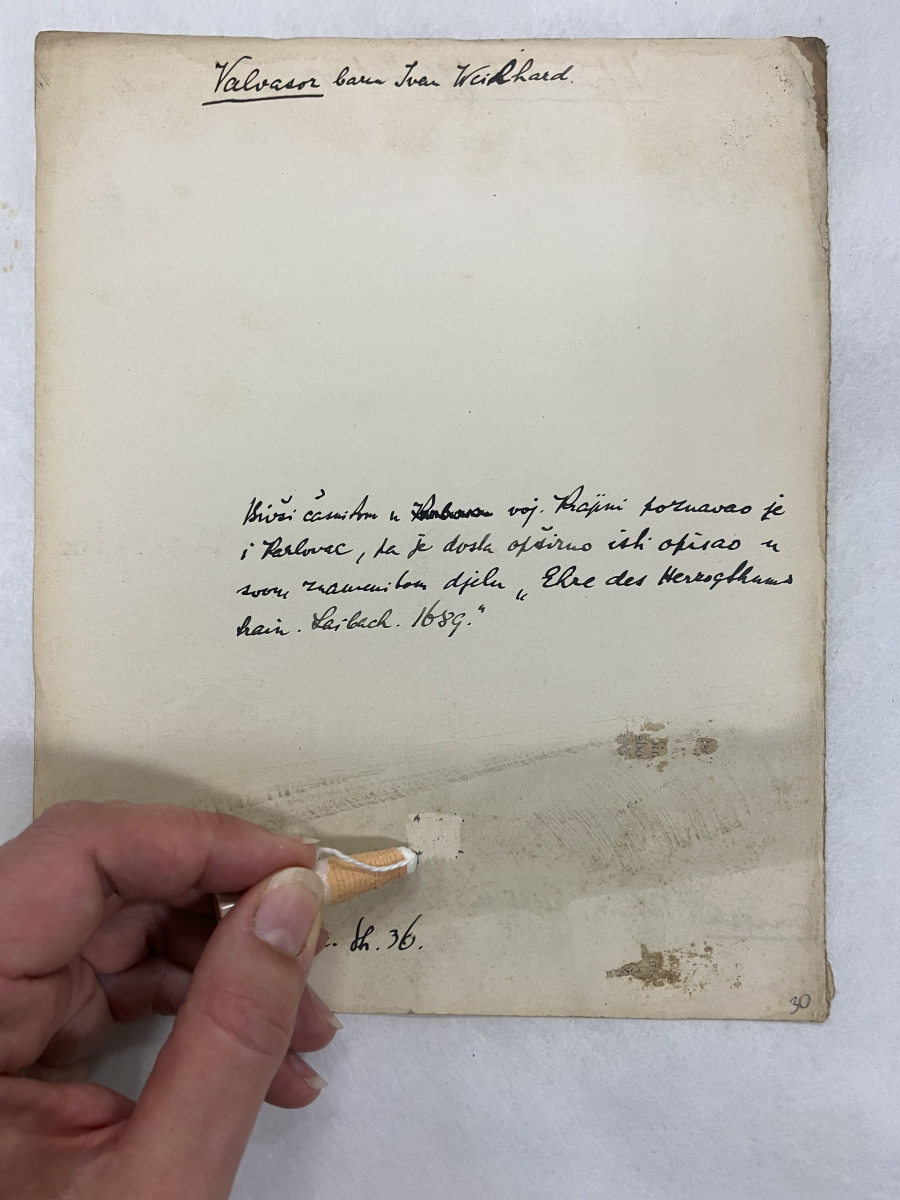 Valvasor barun Ivan Weikhard.
Bivši časnikom u voj. Krajini poznavao je
i Karlovac, pa je dosta opširno isti opisao u
svom znamenitom djelu „Ehre des Herzogthums
Krain. Laibach. 1689."
36.
30